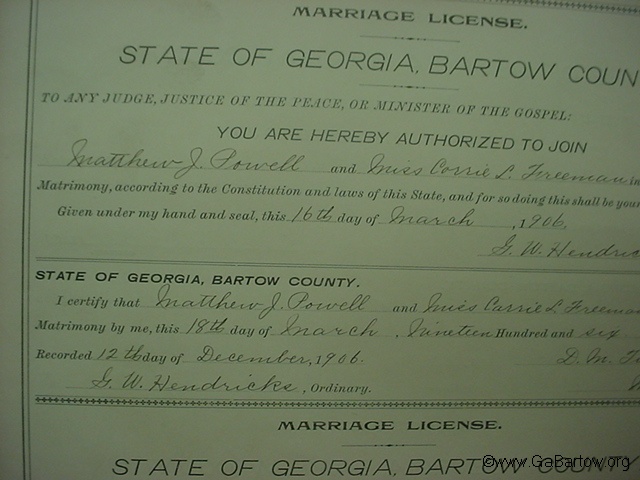 MARRIAGE LICENSE.
STATE OF GEORGIA, BARTOW COUN
TO ANY JUDGE, JUSTICE OF THE PEACE, OR MINISTER OF THE GOSPEL:
YOU ARE HEREBY AUTHORIZED TO JOIN
Matthew J. Powell and Miss Corrie L. Freeman in
Matrimony, according to the Constitution and laws of this State, and for so doing this shall be your
Given under my hand and seal, this 16th day of March, 1906.
G. W. Hendric
STATE OF GEORGIA, BARTOW COUNTY.
I certify that Matthew J. Powell and Miss Carrie L. Freeman
Matrimony by me, this 18th day of March, Nineteen Hundred and six
Recorded 12th day of December, 1906. D. M. T
G. W. Hendricks, Ordinary.
MARRIAGE LICENSE.
STATE OF GEORGIA, BARTOW COUNTY
©www.GaBartow.org